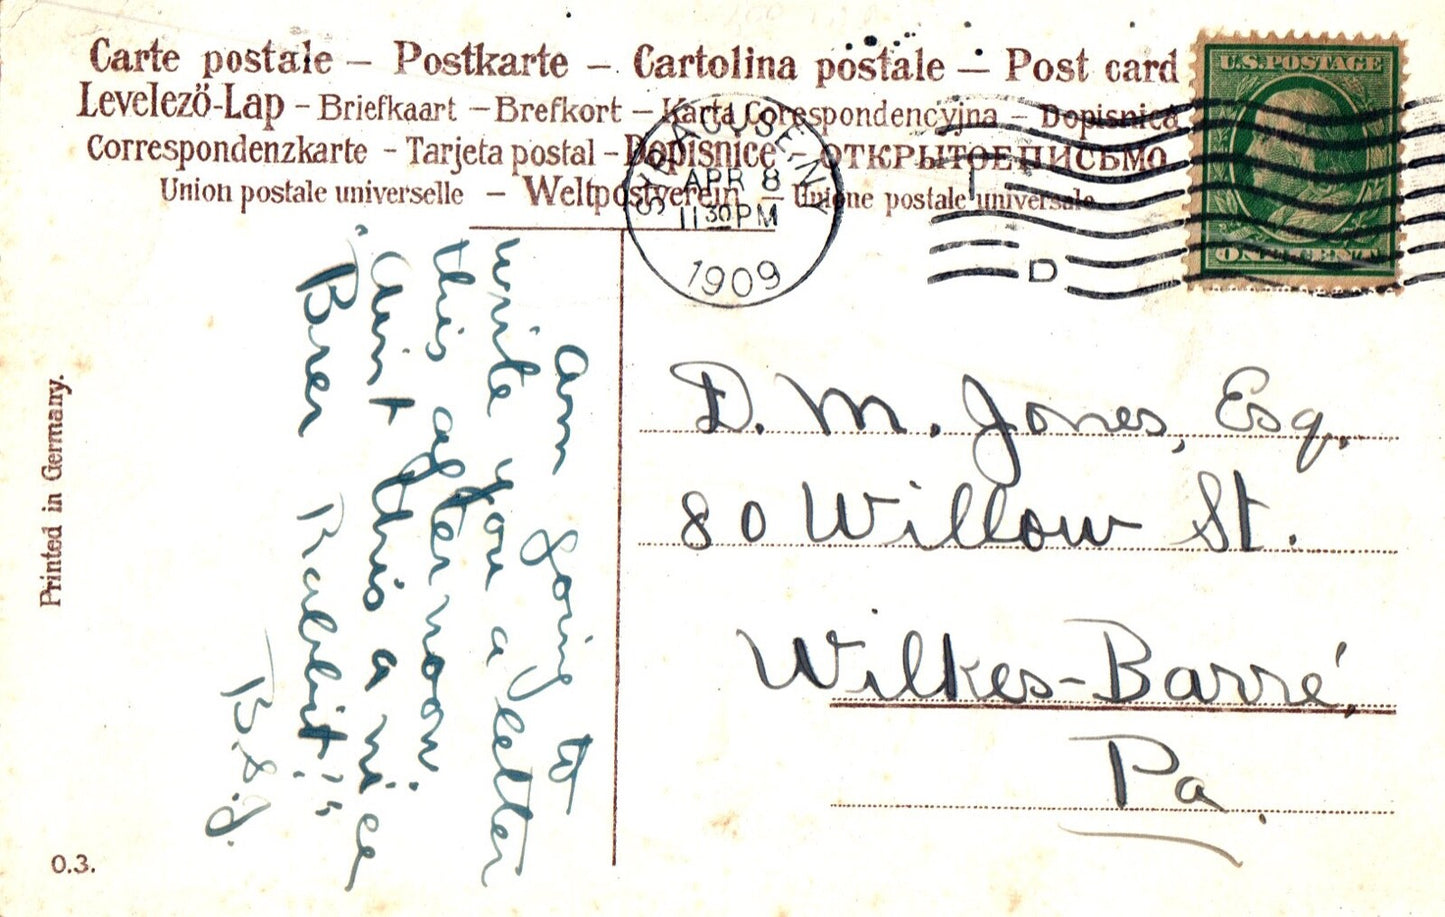 Carte postale – Postkarte – Cartolina postale – Post card
Levelező-Lap – Briefkaart – Brefkort – Karta Corespondencyjna – Dopisnica
Correspondenzkarte – Tarjeta postal – Dopisnice – ОТКРЫТОЕ ПИСЬМО
Union postale universelle – Weltpostverein – Unione postale universale
SYRACUSE, N.Y.
APR 8
11 30 PM
1909
D
U.S. POSTAGE
ONE CENT
am going to
write you a letter
this afternoon.
"Ain't this a nice
Brer Rabbit"?
B. S. J.
D. M. Jones, Esq.
80 Willow St.
Wilkes-Barré,
Pa.
Printed in Germany.
O.3.